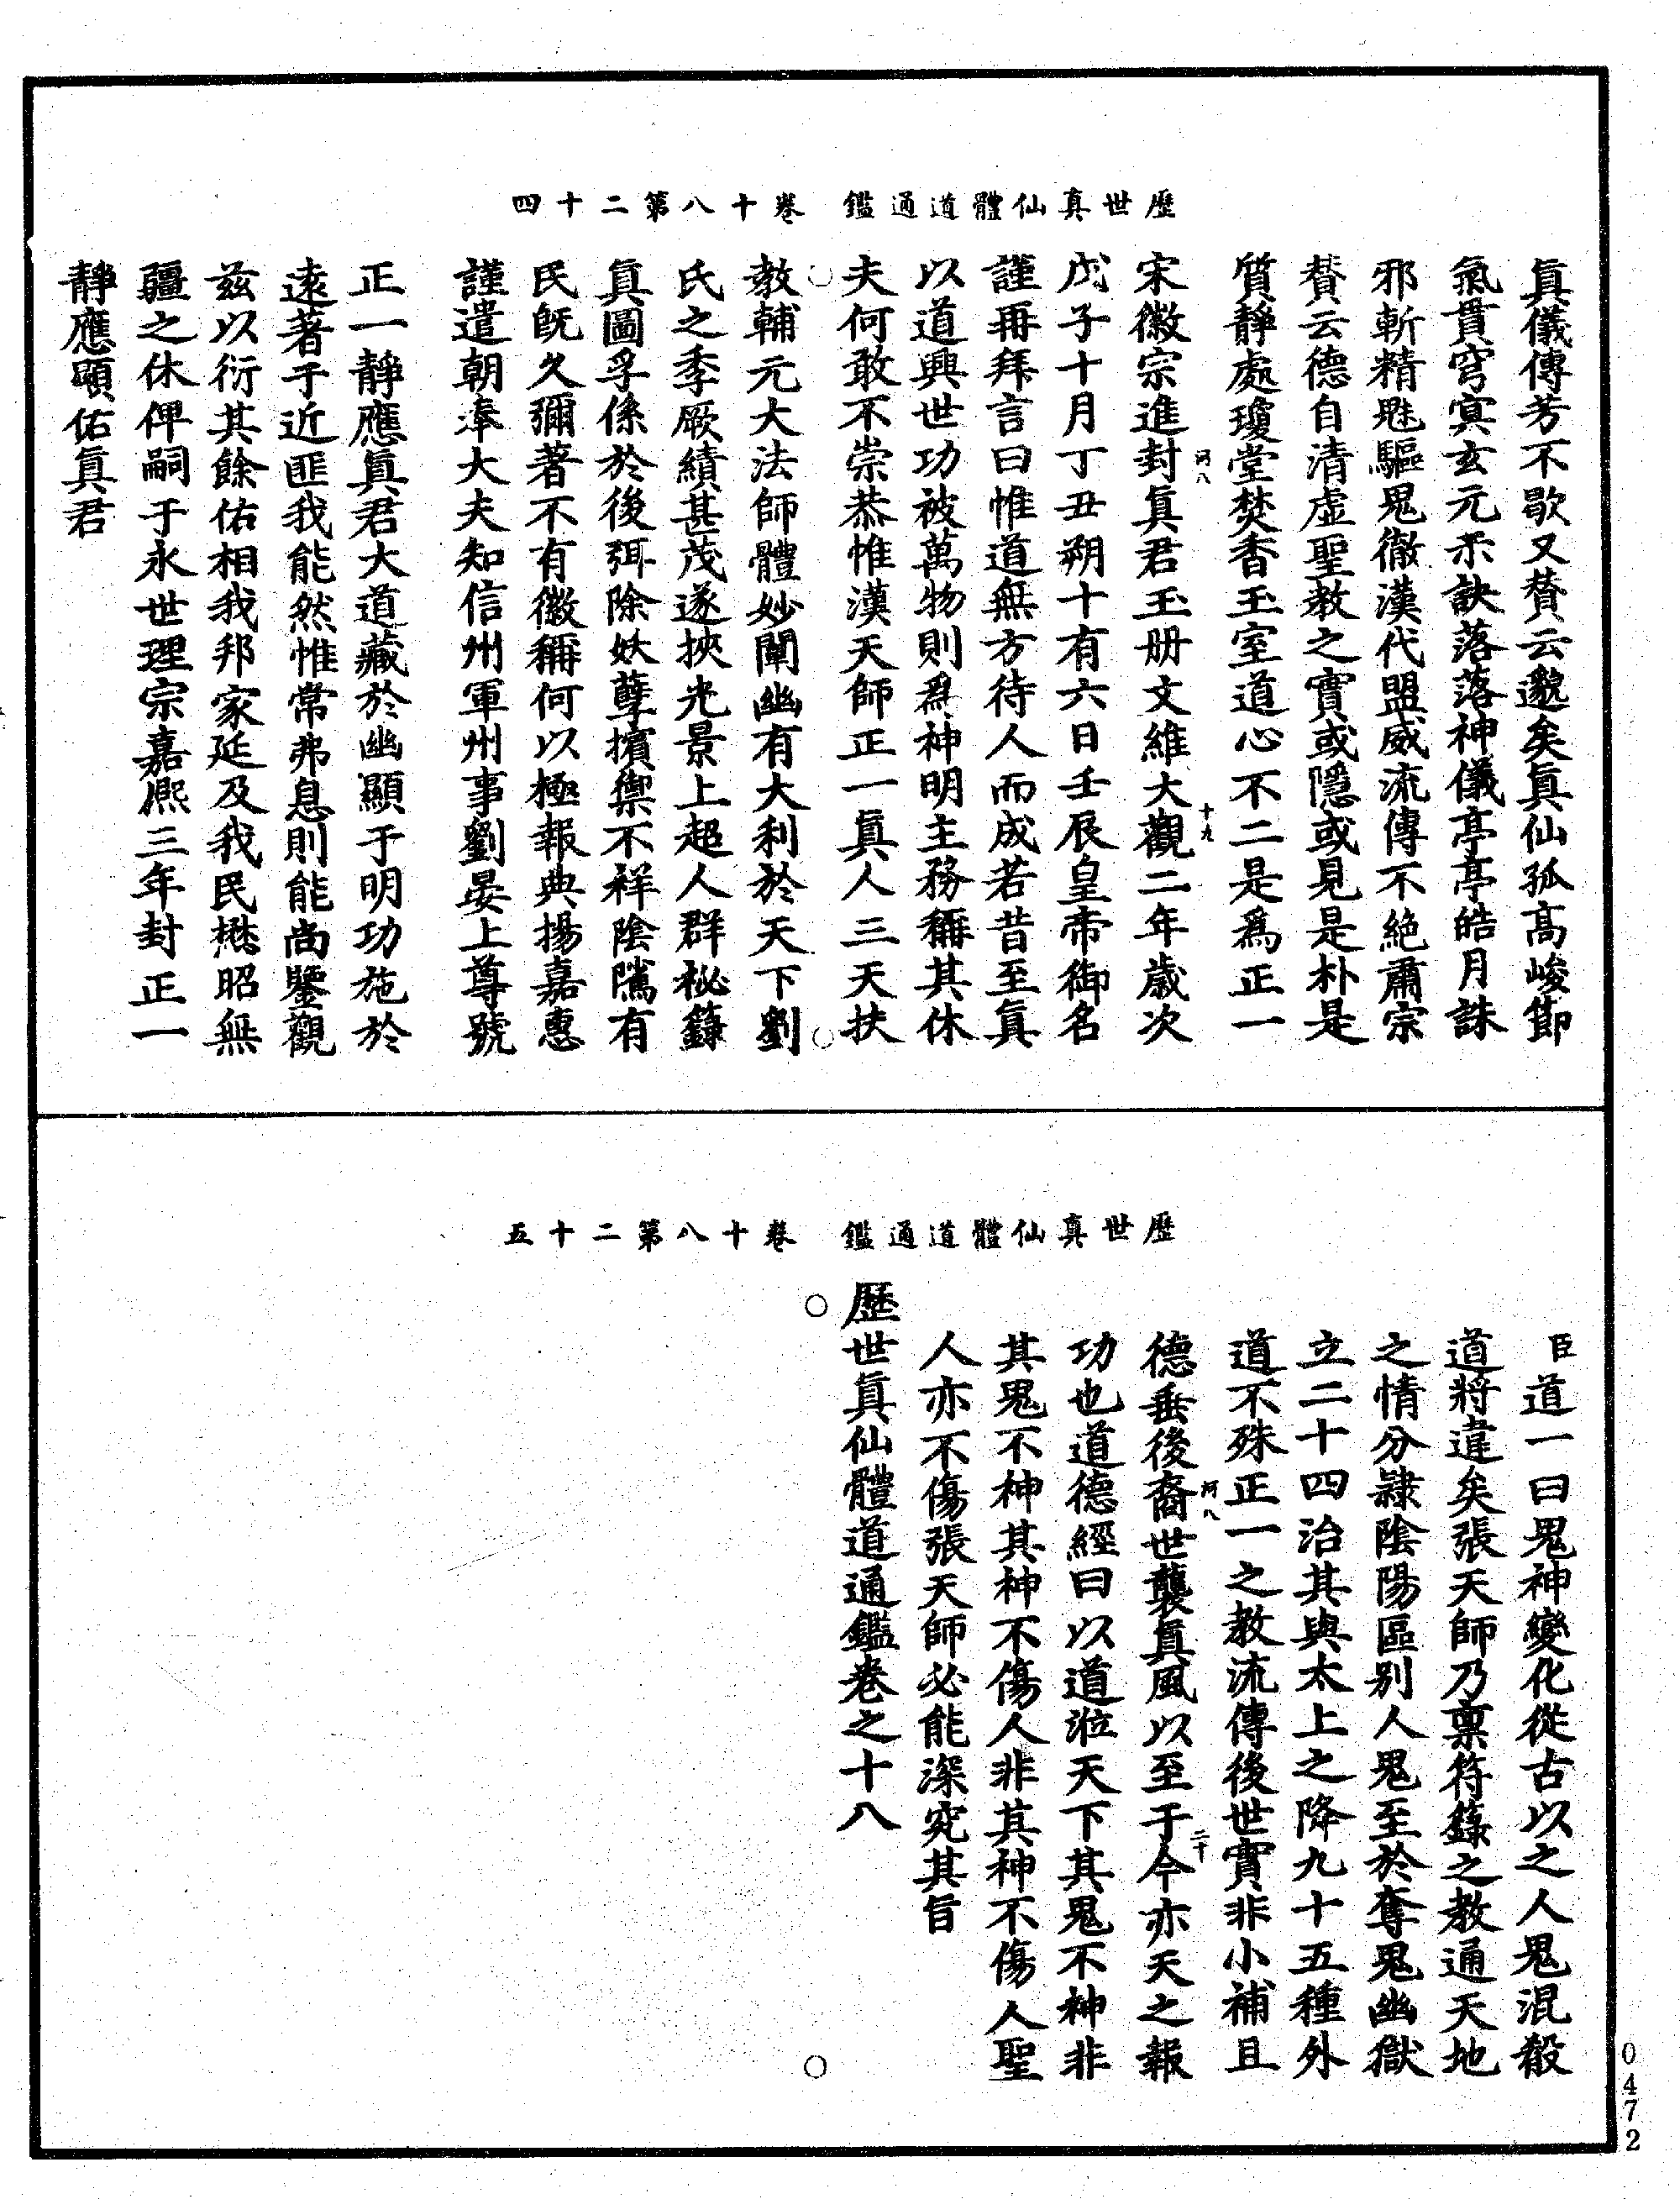 歷世真仙體道通鑑 卷十八第二十四
真儀傳芳不歇又贊云邈矣真仙孤高峻節
氣貫穹冥玄元示訣落落神儀亭亭皓月誅
邪斬精魁驅鬼徹漢代盟威流傳不絕肅宗
贊云德自清虛聖教之實或隱或見是朴是
質靜處瓊堂焚香玉室道心不二是為正一
宋徽宗進封真君玉册文維大觀二年歲次
河八
十九
戊子十月丁丑朔十有六日壬辰皇帝御名
謹再拜言曰惟道無方待人而成若昔至真
以道興世功被萬物則爲神明主務稱其休
夫何敢不崇恭惟漢天師正一真人三天扶
教輔元大法師體妙闡幽有大利於天下劉
氏之季厥績甚茂遂挾光景上超人群秘籙
真圖孚係於後弭除妖孽擯禦不祥陰隲有
民旣久彌著不有徽稱何以極報典揚嘉惠
謹遣朝奉大夫知信州軍州事劉晏上尊號
正一靜應真君大道藏於幽顯于明功施於
遠著于近匪我能然惟常弗息則能尚鑒觀
茲以衍其餘佑相我邦家延及我民懋昭無
疆之休俾嗣于永世理宗嘉熙三年封正一
靜應顯佑真君
歷世真仙體道通鑑 卷十八第二十五
臣道一曰鬼神變化從古以之人鬼混殽
道將違矣張天師乃稟符籙之教通天地
之情分隷陰陽區別人鬼至於奪鬼幽獄
立二十四治其與太上之降九十五種外
道不殊正一之教流傳後世實非小補且
德垂後裔世襲真風以至于今亦天之報
河八
二十
功也道德經曰以道涖天下其鬼不神非
其鬼不神其神不傷人非其神不傷人聖
人亦不傷張天師必能深究其旨
歷世真仙體道通鑑卷之十八
0472